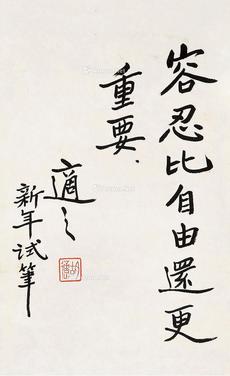 容忍比自由還更
重要.
適之
新年試筆
胡適